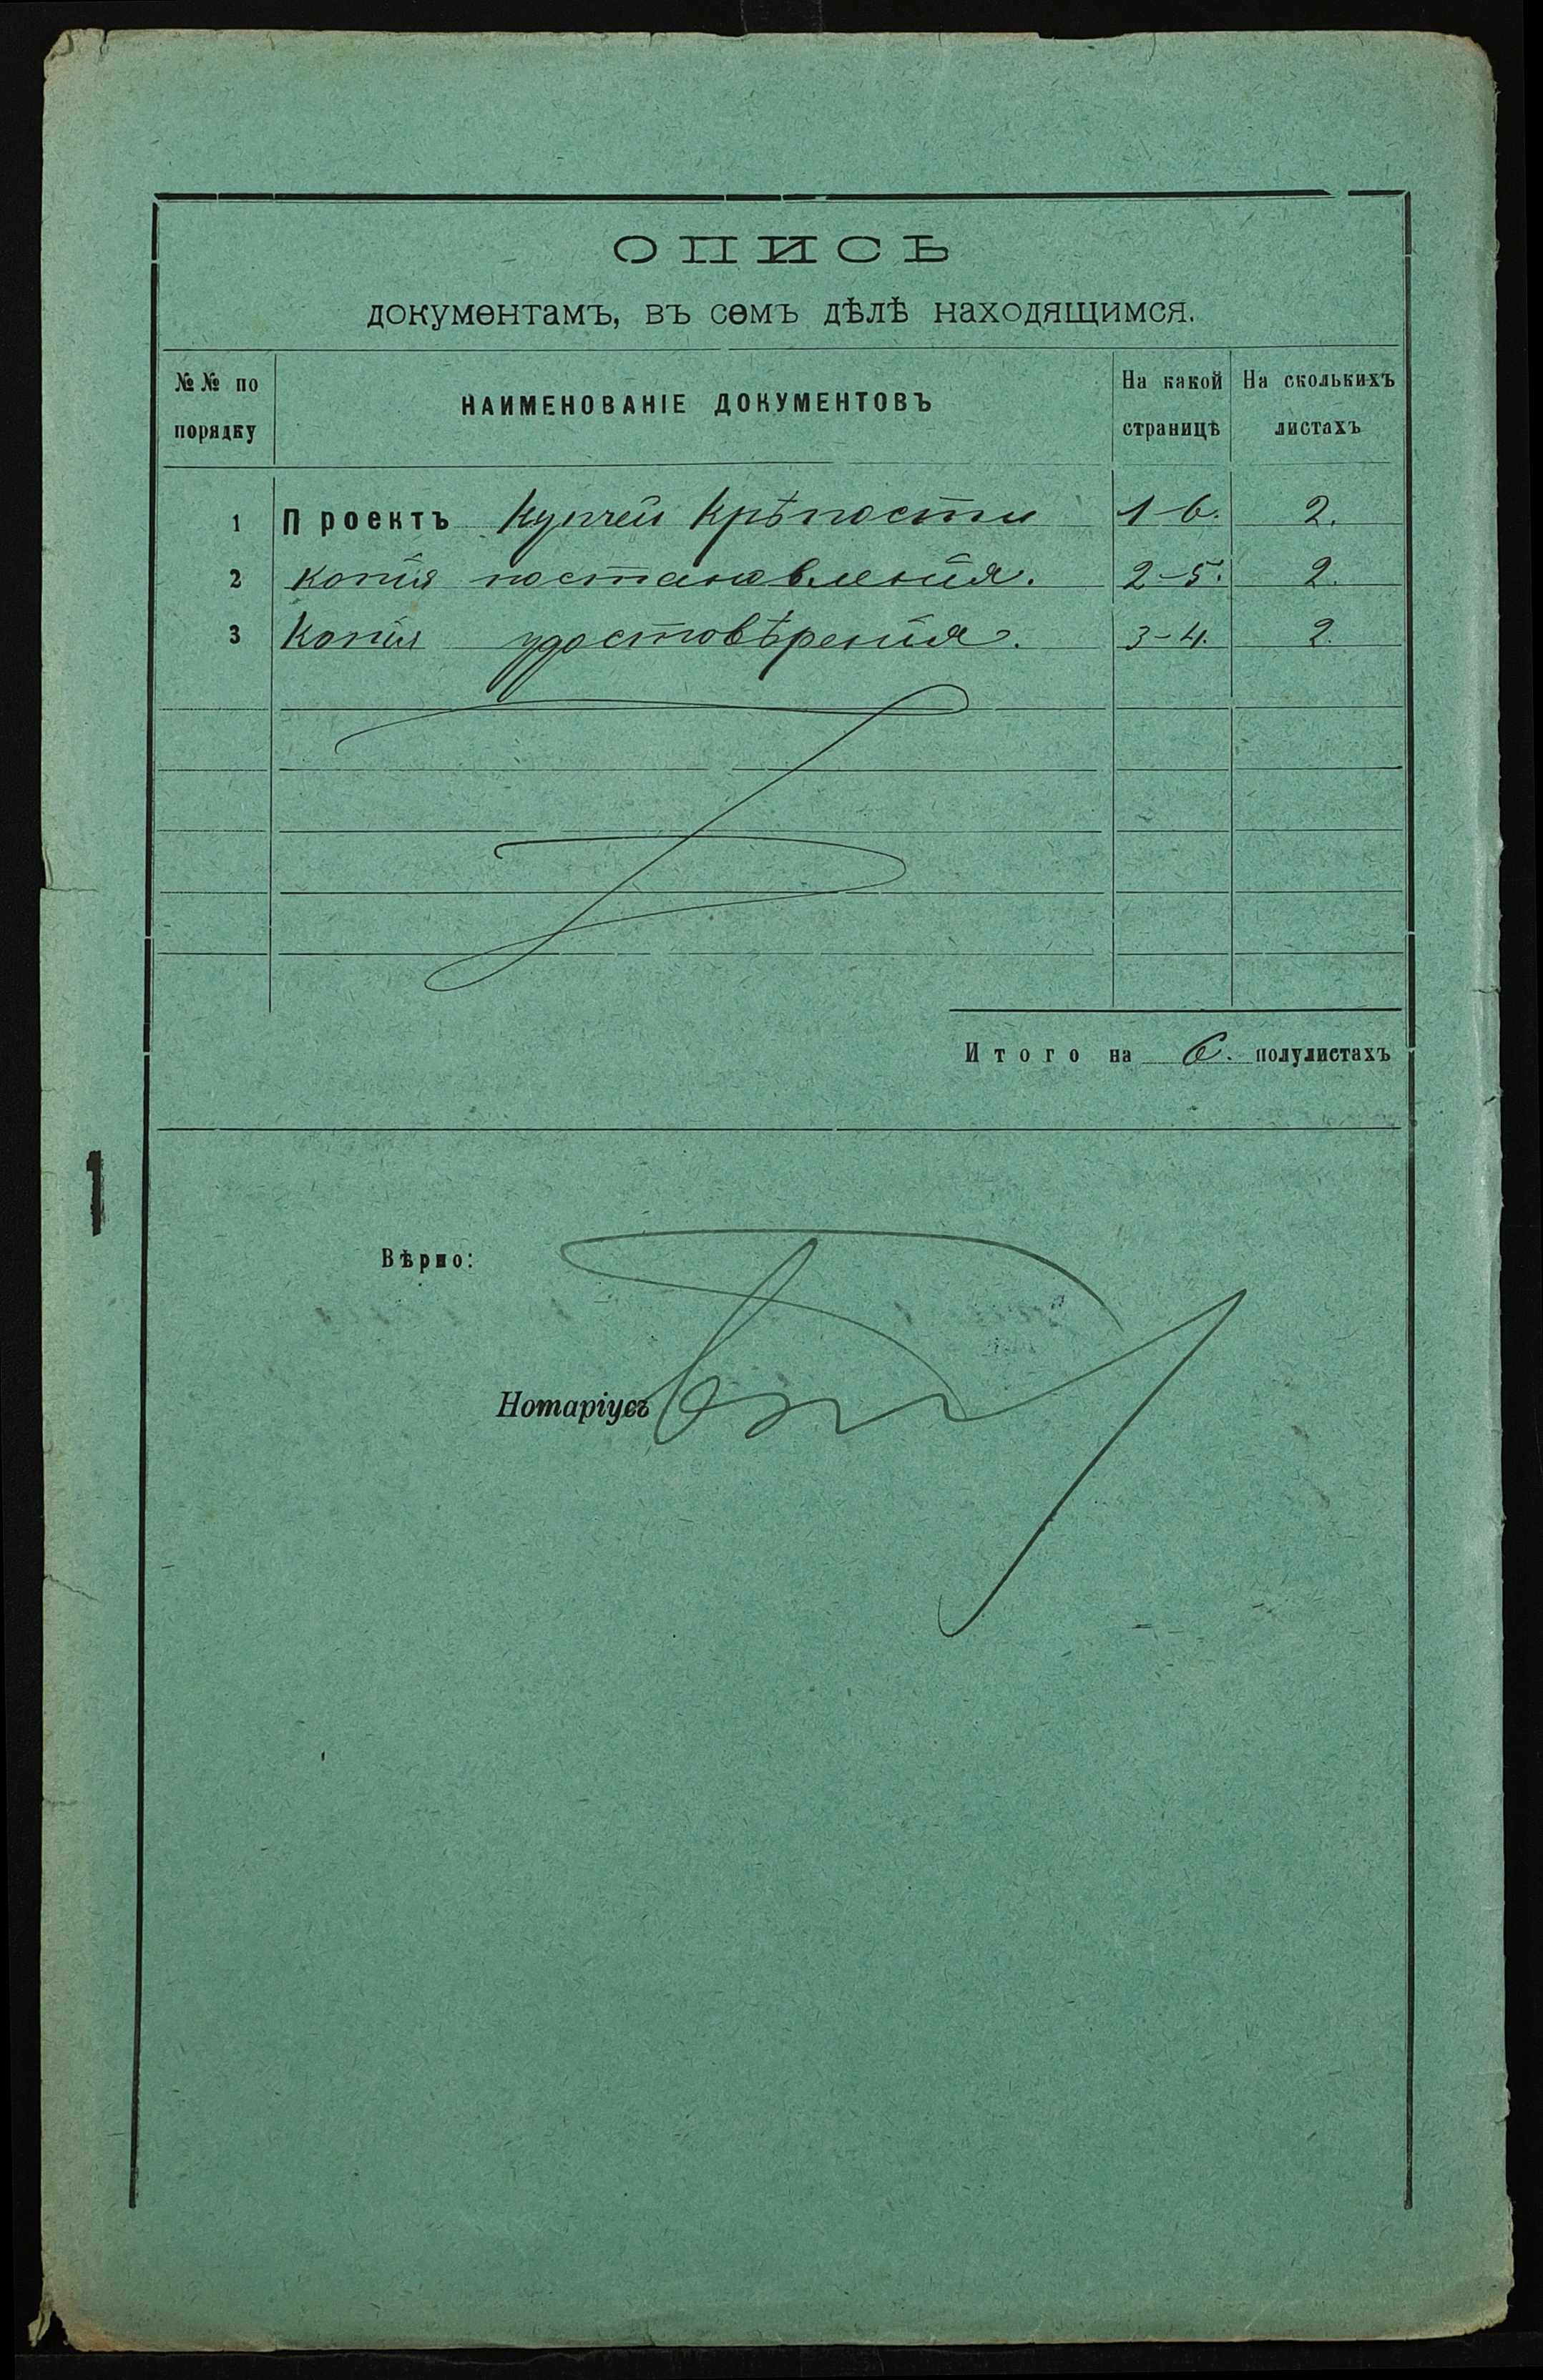 ОПИСЬ
документамъ, въ семъ дѣлѣ находящимся.
№№ по порядку
НАИМЕНОВАНІЕ ДОКУМЕНТОВЪ
На какой страницѣ
На сколькихъ листахъ
1 Проектъ Купчей Крѣпости 1-6. 2.
2 Копія постановленія. 2-5. 2.
3 Копія удостовѣренія. 3-4. 2.
Итого на 6. полулистахъ
1
Вѣрно:
Нотаріусъ